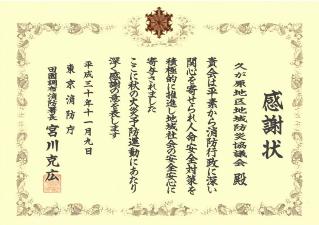 感謝状
久が原地区地域防災協議会 殿
貴会は平素から消防行政に深い
関心を寄せられ人命安全対策を
積極的に推進し地域社会の安全安心に
寄与されました
ここに秋の火災予防運動にあたり
深く感謝の意を表します
平成三十年十一月九日
東京消防庁
田園調布消防署長 宮川克広